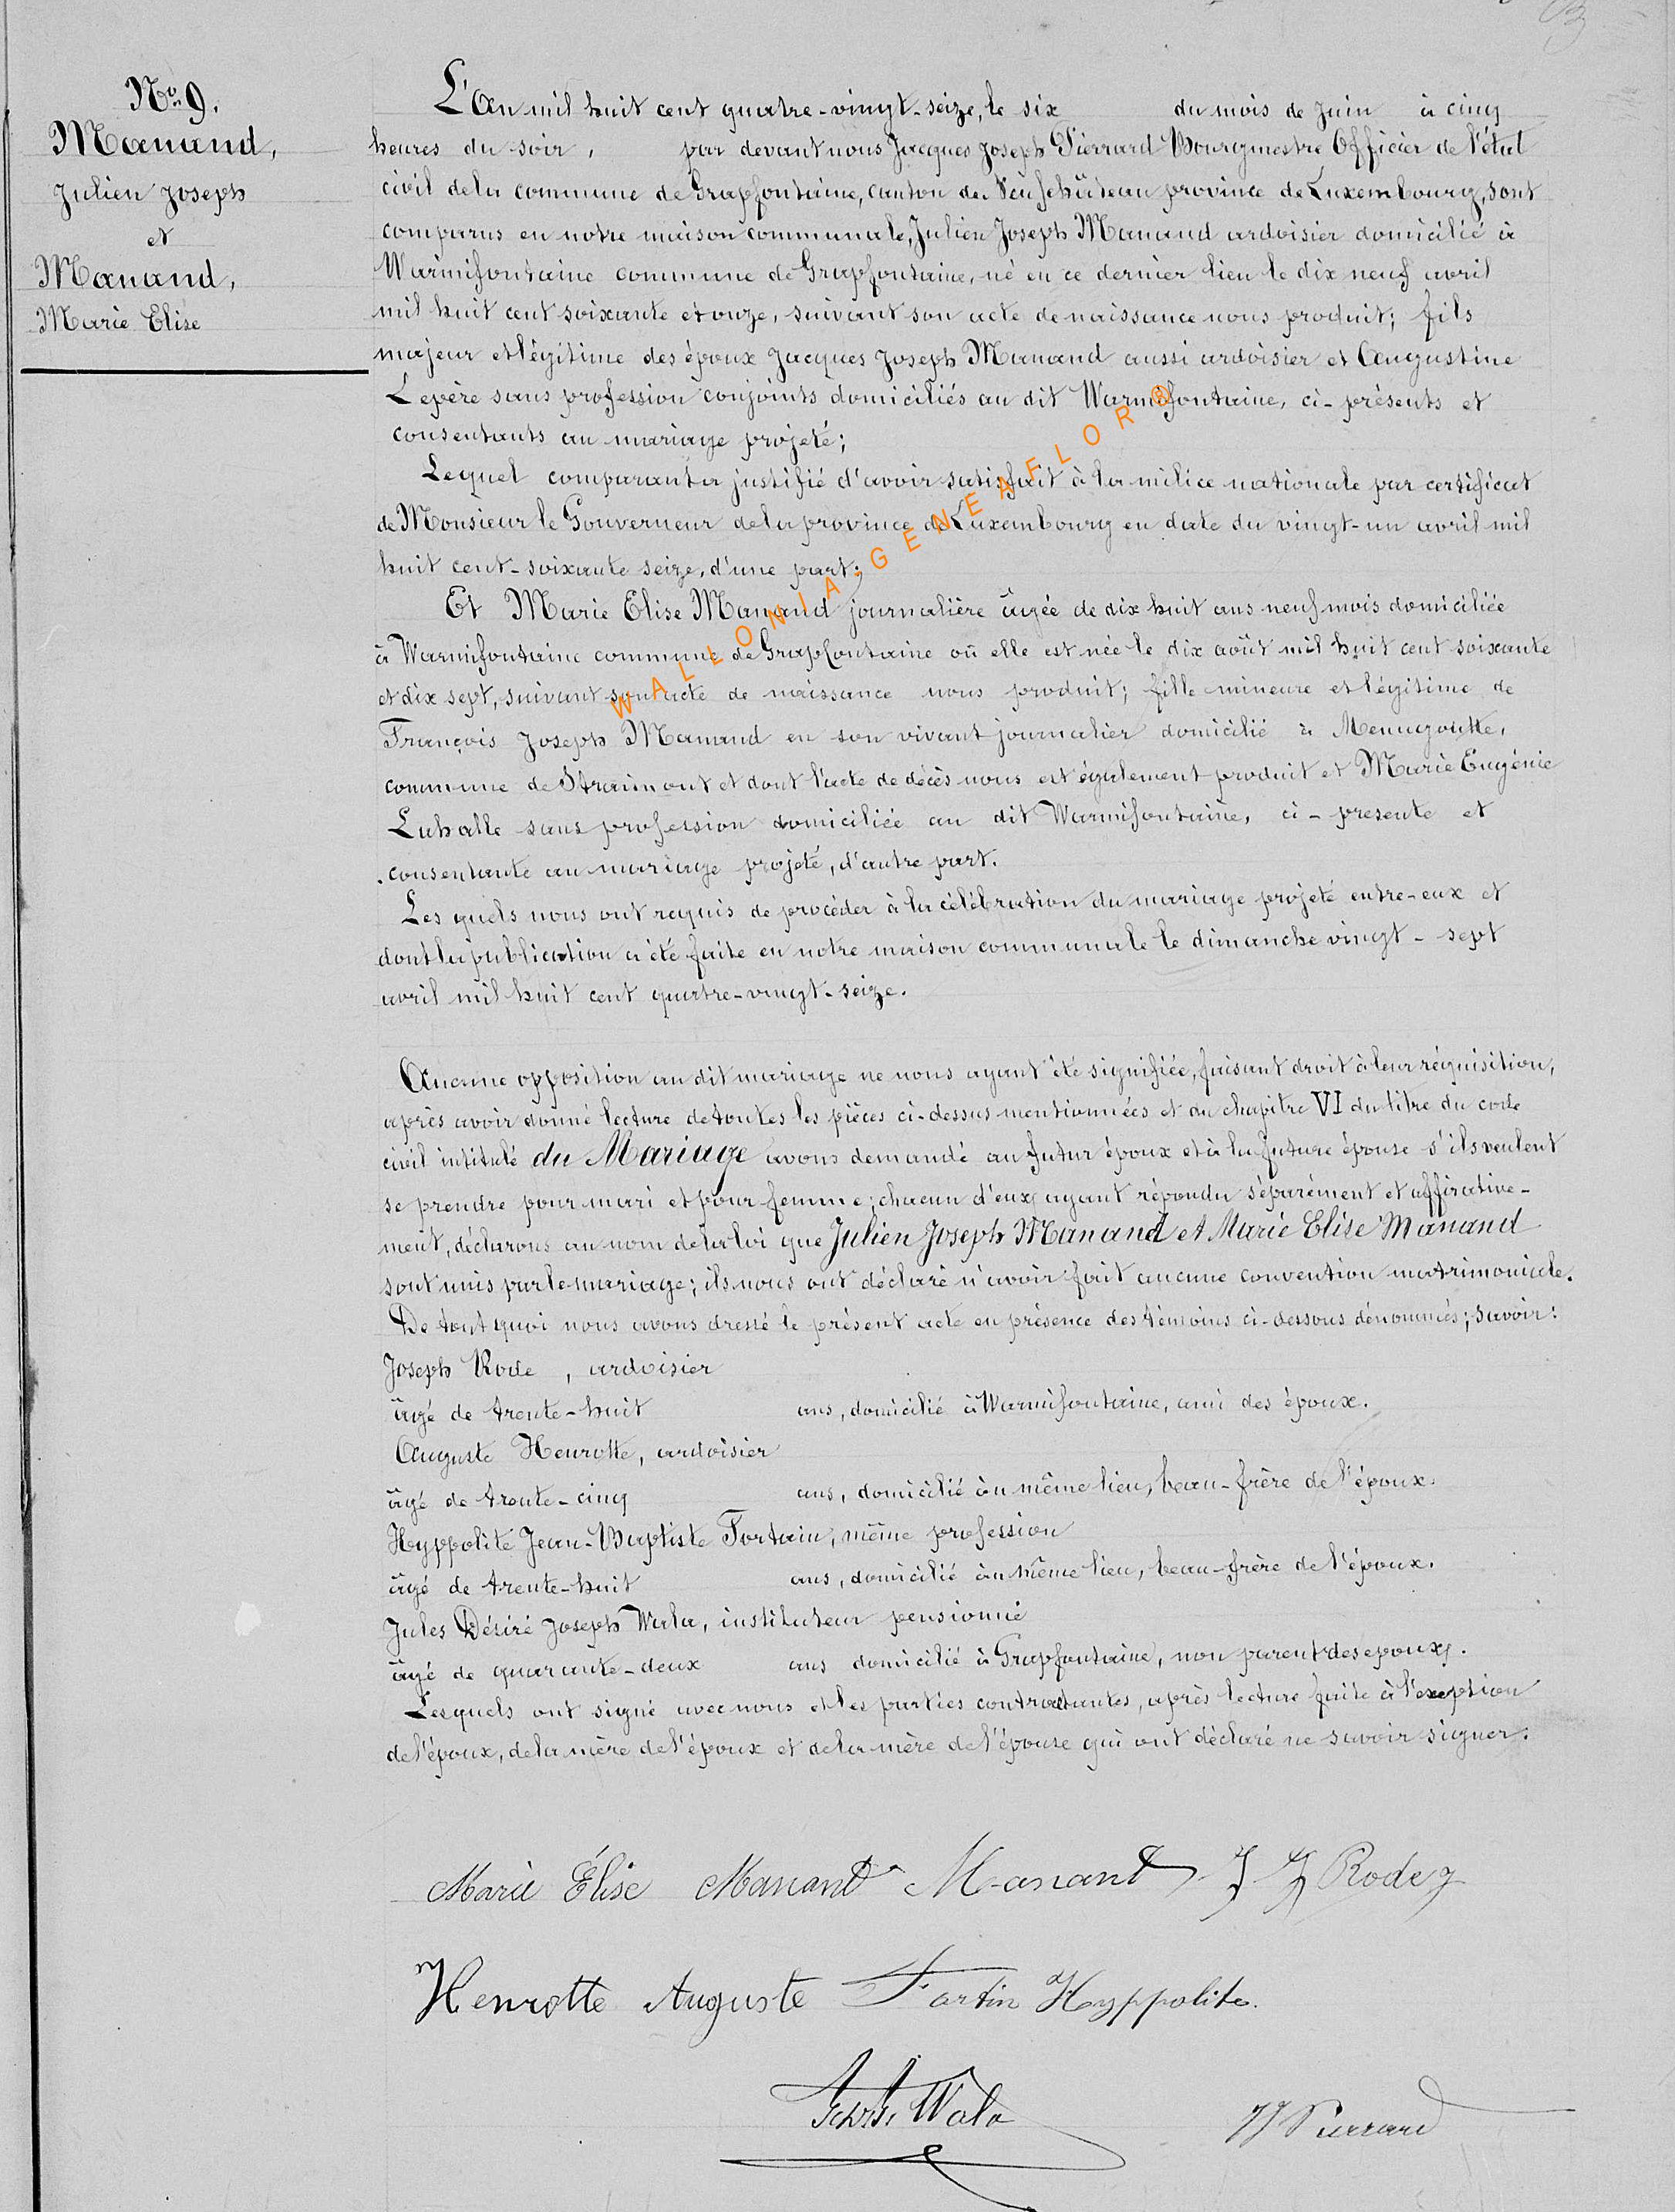 No. 9.
Manand,
Julien Joseph
et
Manand,
Marie Elise
L'An mil huit cent quatre-vingt-seize, le six du mois de Juin à cinq
heures du soir, par devant nous Jacques Joseph Pierrard Bourgmestre Officier de l'état
civil de la commune de Grapfontaine, canton de Neufchâteau province de Luxembourg, sont
comparus en notre maison communale, Julien Joseph Manand ardoisier domicilié à
Warmifontaine commune de Grapfontaine, né en ce dernier lieu le dix neuf avril
mil huit cent soixante et onze, suivant son acte de naissance nous produit; fils
majeur et légitime des époux Jacques Joseph Manand aussi ardoisier et Augustine
Lepère sans profession conjoints domiciliés au dit Warmifontaine, ci-présents et
consentants au mariage projeté;
Lequel comparant a justifié d'avoir satisfait à la milice nationale par certificat
de Monsieur le Gouverneur de la province de Luxembourg en date du vingt-un avril mil
huit cent-soixante seize, d'une part;
Et Marie Elise Manand journalière âgée de dix huit ans neuf mois domiciliée
à Warmifontaine commune de Grapfontaine où elle est née le dix août mil huit cent soixante
et dix sept, suivant son acte de naissance nous produit; fille mineure et légitime de
François Joseph Manand en son vivant journalier domicilié à Menugoutte,
commune de Straimont et dont l'acte de décès nous est également produit et Marie Eugénie
Lahalle sans profession domiciliée au dit Warmifontaine, ci-presente et
consentante au mariage projeté, d'autre part.
Les quels nous ont requis de procéder à la célébration du mariage projeté entre-eux et
dont la publication a été faite en notre maison communale le dimanche vingt-sept
avril mil huit cent quatre-vingt-seize.
Aucune opposition au dit mariage ne nous ayant été signifiée, faisant droit à leur réquisition,
après avoir donné lecture de toutes les pièces ci-dessus mentionnées et du chapitre VI du titre du code
civil intitulé du Mariage avons demandé au futur époux et à la future épouse s'ils veulent
se prendre pour mari et pour femme; chacun d'eux ayant répondu séparément et affirative-
ment, déclarons au nom de la loi que Julien Joseph Manand et Marie Elise Manand
sont unis par le mariage; ils nous ont déclaré n'avoir fait aucune convention matrimoniale.
De tout quoi nous avons dressé le présent acte en présence des témoins ci-dessous dénommés; savoir:
Joseph Rode, ardoisier
âgé de trente-huit ans, domicilié à Warmifontaine, ami des époux.
Auguste Henrotte, ardoisier
âgé de trente-cinq ans, domicilié au même lieu, beau-frère de l'époux.
Hyppolite Jean-Baptiste Fortain, même profession
âgé de trente-huit ans, domicilié au même lieu, beau-frère de l'époux.
Jules Désiré Joseph Wala, instituteur pensionné
âgé de quarante-deux ans domicilié à Grapfontaine, non parent des epoux.
Lesquels ont signé avec nous et les parties contractantes, après lecture faite à l'exeption
de l'époux, de la mère de l'époux et de la mère de l'épouse qui ont déclaré ne savoir signer.
Marie Élise Manand Manand J J Rode
Henrotte Auguste Fortin Hyppolite.
Wala JJ Pierrard
WALLONIA-GENEAFLOR®